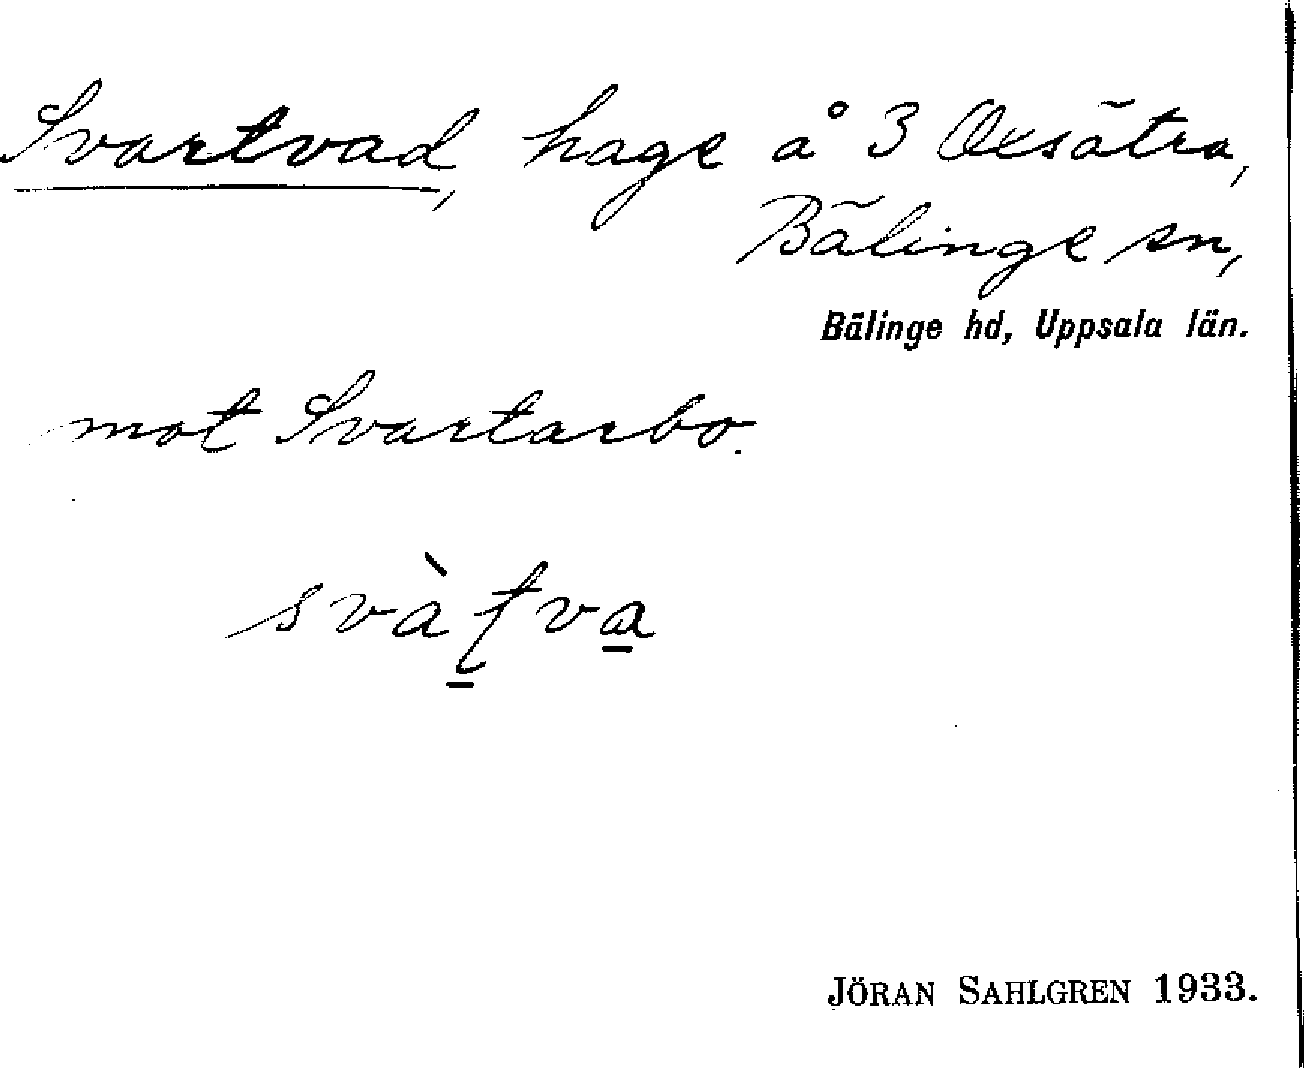 Svartvad, hage å 3 Oxsätra,
Bälinge sn,
Bälinge hd, Uppsala län.
mot Svartarbo.
svàʈva̲
JÖRAN SAHLGREN 1933.